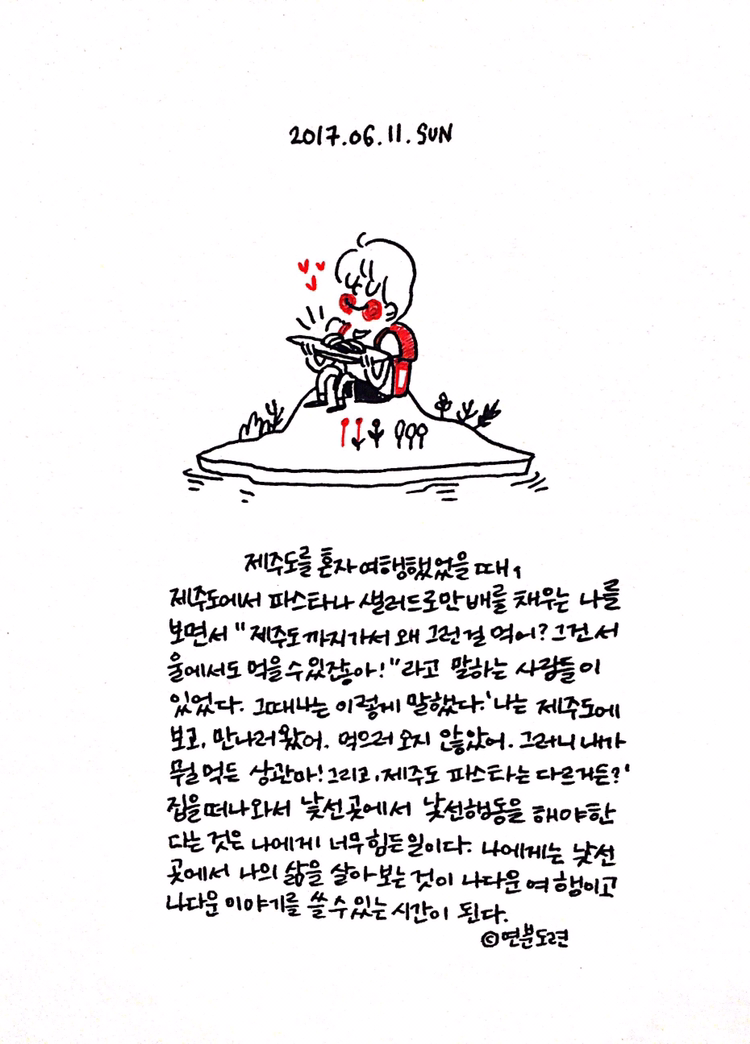 2017.06.11.SUN
제주도를 혼자 여행했었을 때,
제주도에서 파스타나 샐러드로만 배를 채우는 나를
보면서 "제주도까지가서 왜 그런걸 먹어? 그건 서
울에서도 먹을 수 있잖아!"라고 말하는 사람들이
있었다. 그때 나는 이렇게 말했다.'나는 제주도에
보고, 만나러 왔어. 먹으러 오지 않았어. 그러니 내가
뭘 먹든 상관마! 그리고, 제주도 파스타는 다르거든?'
집을 떠나와서 낯선 곳에서 낯선행동을 해야한
다는 것은 나에게 너무 힘든 일이다. 나에게는 낯선
곳에서 나의 삶을 살아보는 것이 나다운 여행이고
나다운 이야기를 쓸 수 있는 시간이 된다.
©연분도련